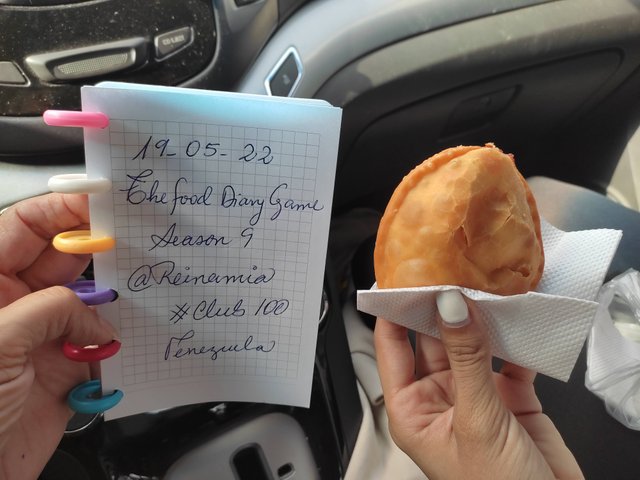 19-05-22
The food Diary Game
Season 9
@Reinamia
#Club 100
Venezuela